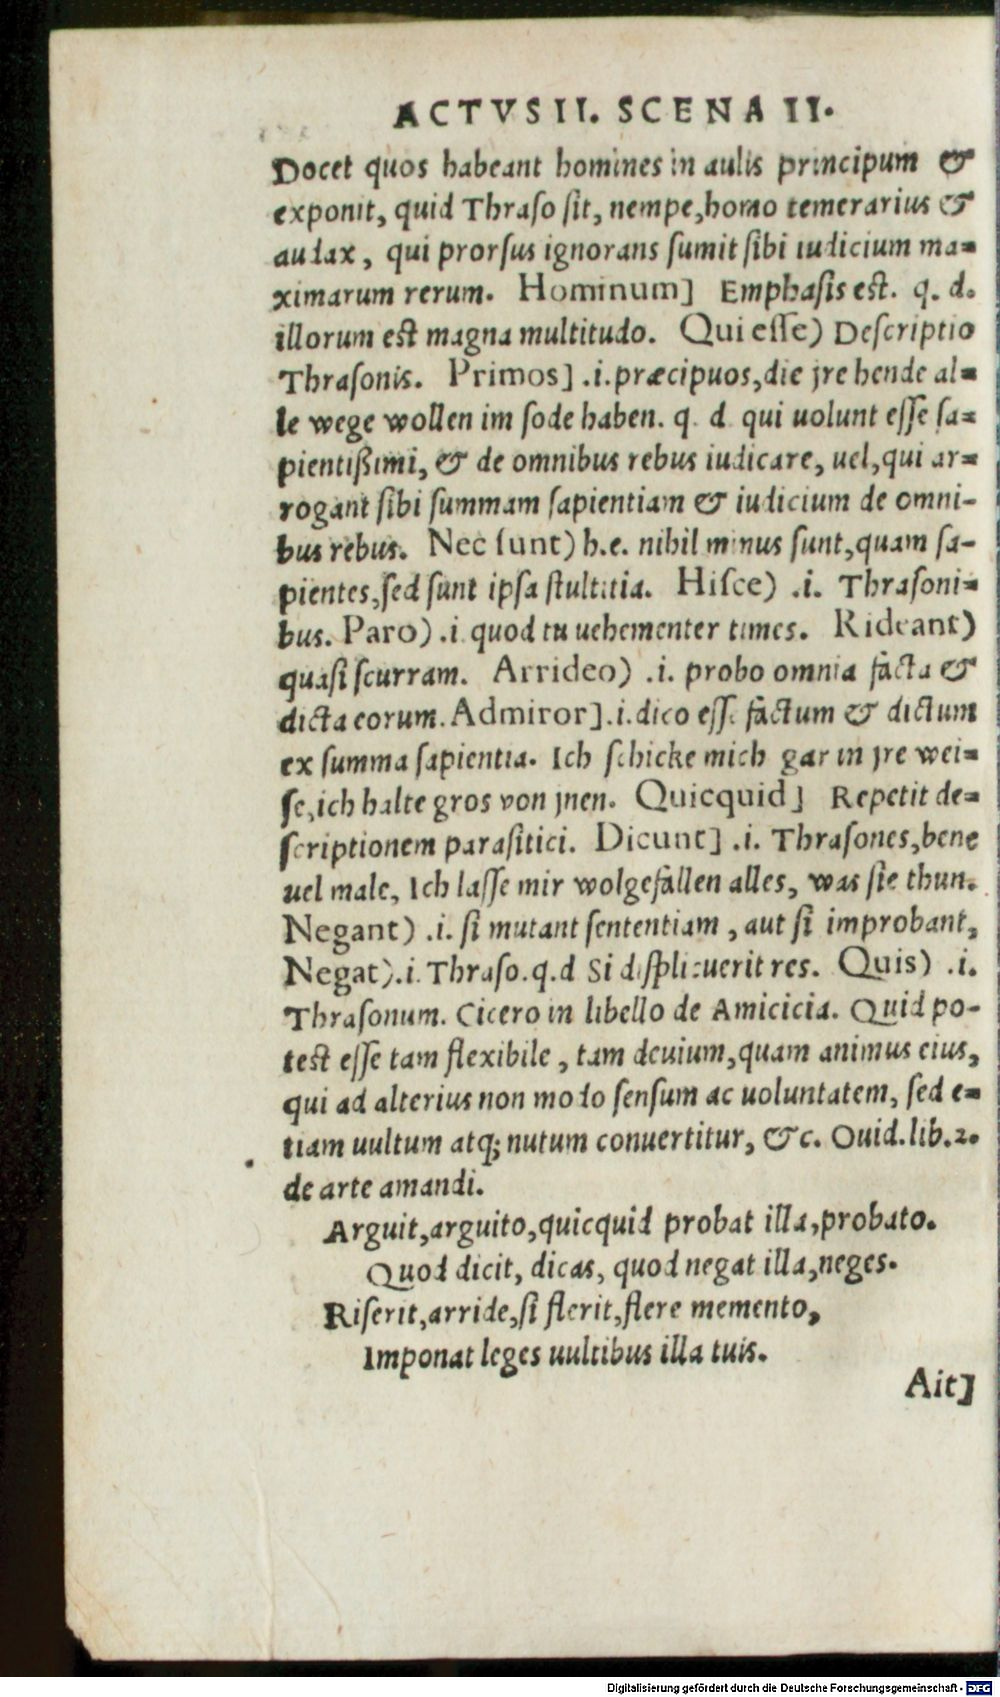 ACTVS II. SCENA II.
Docet quos habeant homines in aulis principum &
exponit, quid Thraso sit, nempe, homo temerarius &
audax, qui prorsus ignorans sumit sibi iudicium ma=
ximarum rerum. Hominum] Emphasis est. q. d.
illorum est magna multitudo. Qui esse) Descriptio
Thrasonis. Primos] .i. præcipuos, die jre hende al=
le wege wollen im sode haben. q. d qui uolunt esse sa=
pientißimi, & de omnibus rebus iudicare, uel, qui ar=
rogant sibi summam sapientiam & iudicium de omni-
bus rebus. Nec sunt) h.e. nihil minus sunt, quam sa-
pientes, sed sunt ipsa stultitia. Hisce) .i. Thrasoni=
bus. Paro) .i quod tu uehementer times. Rideant)
quasi scurram. Arrideo) .i. probo omnia facta &
dicta eorum. Admiror] .i. dico esse factum & dictum
ex summa sapientia. Ich schicke mich gar in jre wei=
se, ich halte gros von jnen. Quicquid] Repetit de=
scriptionem parasitici. Dicunt] .i. Thrasones, bene
uel male, Ich lasse mir wolgefallen alles, was sie thun.
Negant) .i. si mutant sententiam, aut si improbant,
Negat) .i. Thraso. q.d Si displicuerit res. Quis) .i.
Thrasonum. Cicero in libello de Amicicia. Quid po-
test esse tam flexibile, tam deuium, quam animus eius,
qui ad alterius non modo sensum ac uoluntatem, sed e=
tiam uultum atq; nutum conuertitur, &c. Ouid. lib. 2.
de arte amandi.
Arguit, arguito, quicquid probat illa, probato.
Quod dicit, dicas, quod negat illa, neges.
Riserit, arride, si flerit, flere memento,
Imponat leges uultibus illa tuis.
Ait]
Digitalisierung gefördert durch die Deutsche Forschungsgemeinschaft - DFG